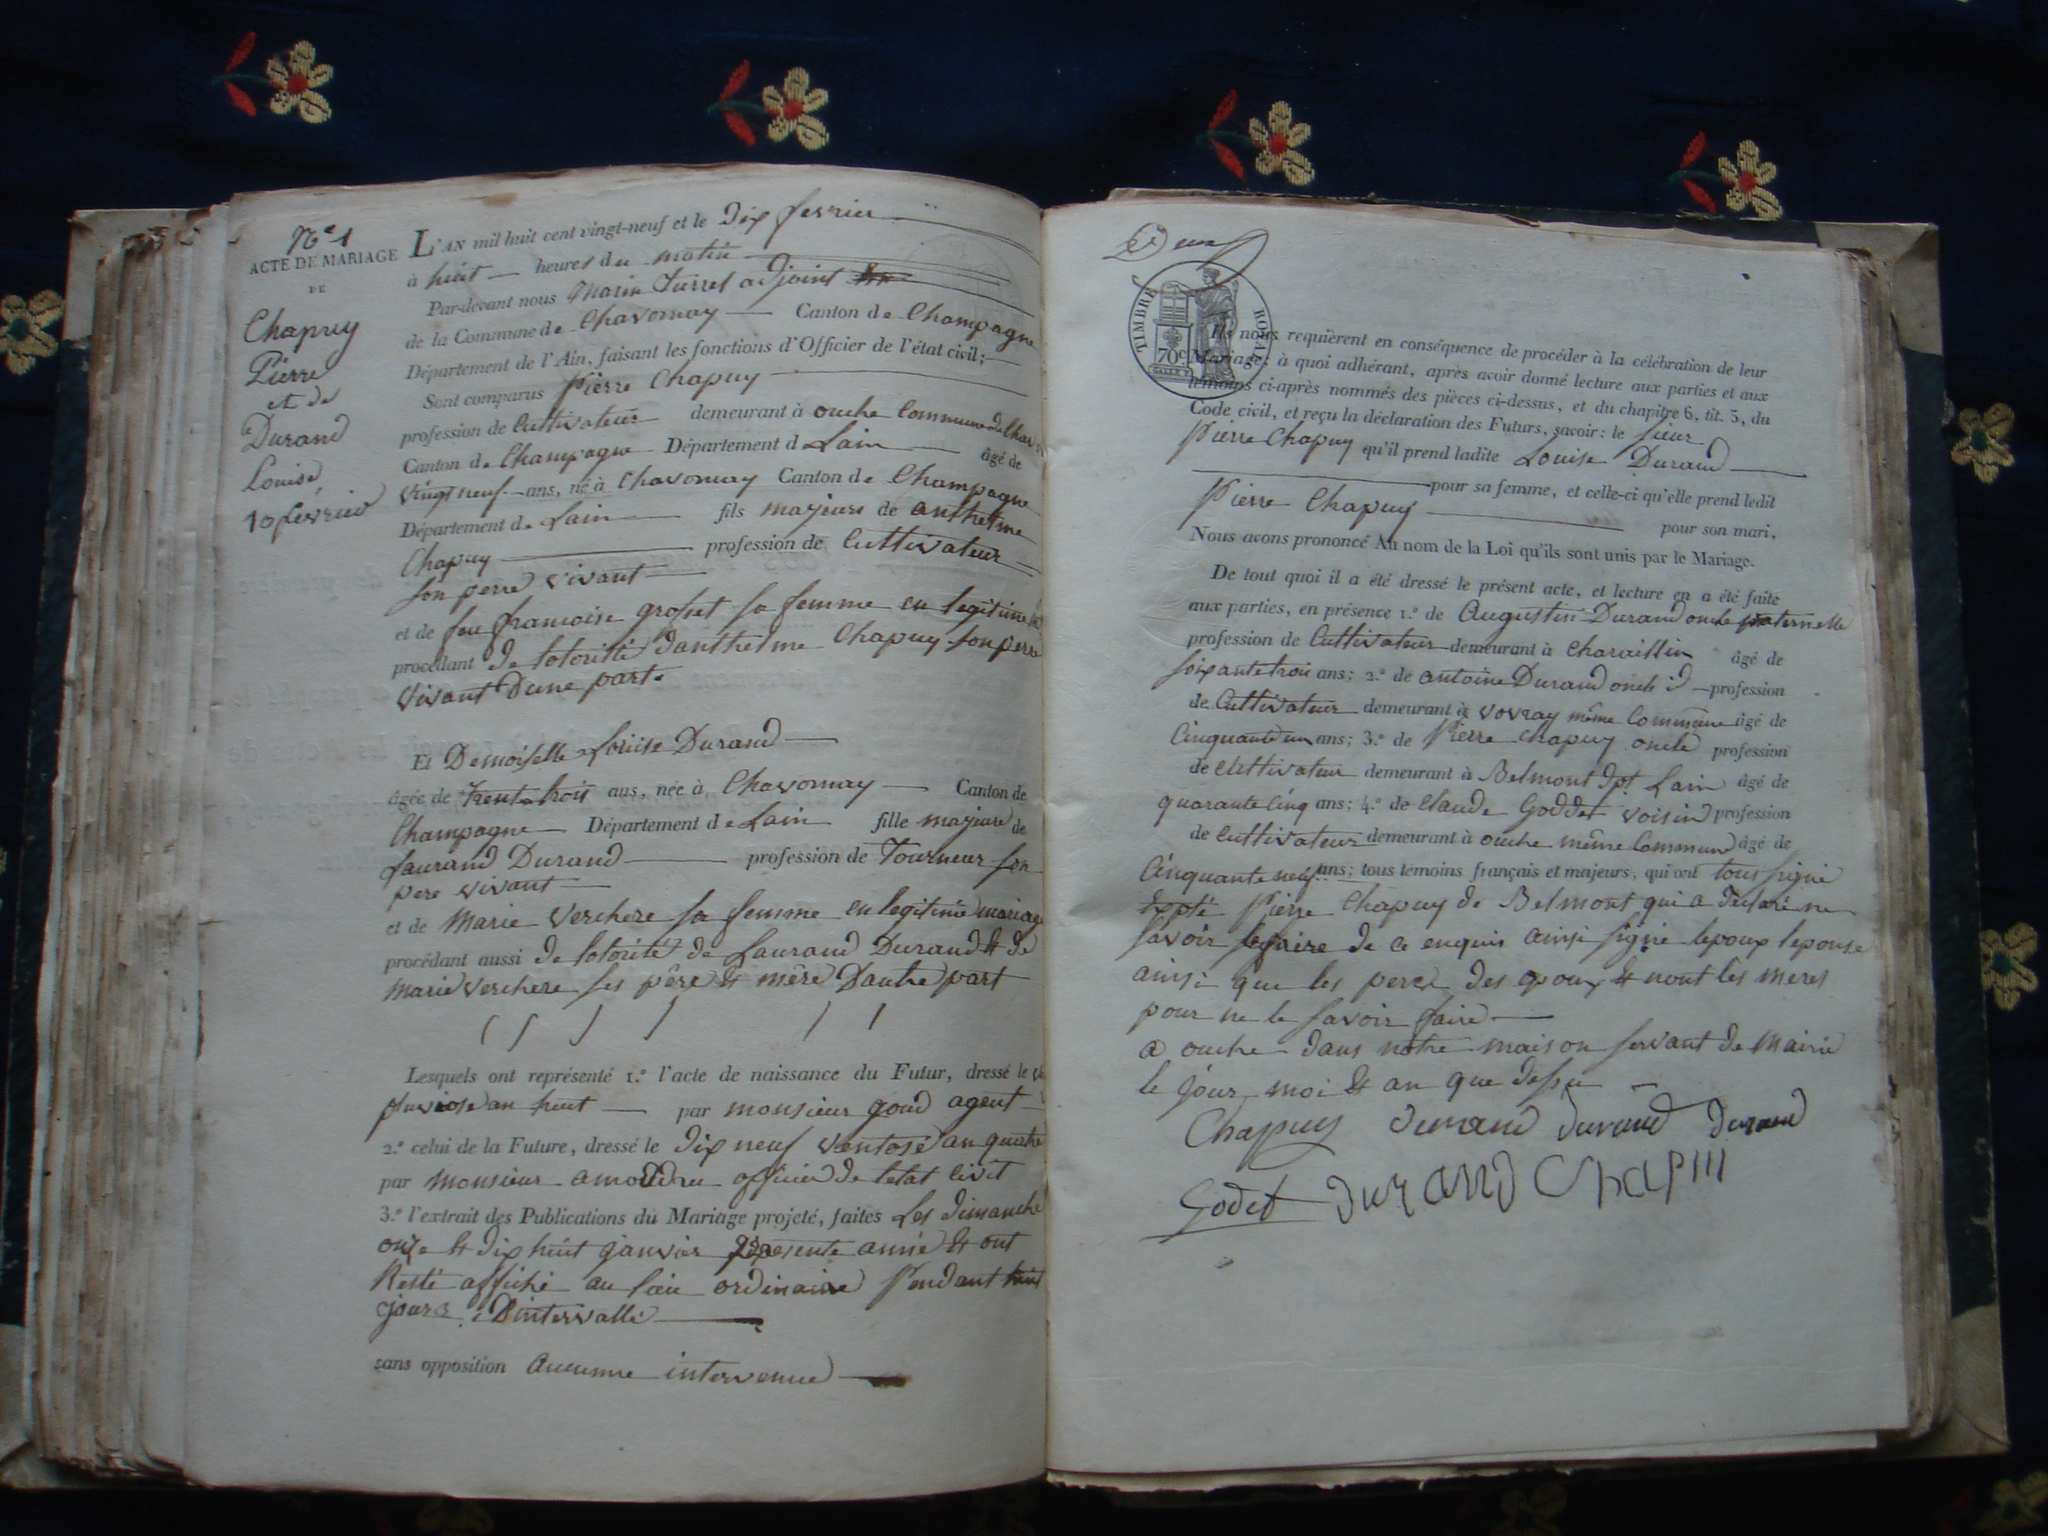 N° 1
ACTE DE MARIAGE
DE
Chapuy
Pierre
et de
Durand
Louise
10 fevrier
L'AN mil huit cent vingt-neuf et le Dix fevrier
à huit heures du matin
Par-devant nous Marin adjoint
de la Commune de Chavornay Canton de Champagne
Département de l'Ain, faisant les fonctions d'Officier de l'état civil;
Sont comparus Pierre Chapuy
profession de Cultivateur demeurant à ouche Commune de
Canton de Champagne Département d Lain âgé de
vingt neuf ans, né à Chavornay Canton de Champagne
Département de Lain fils majeure de anthelme
Chapuy profession de Cultivateur
son perre vivant
et de feu francoise grosset sa femme en legitime
procédant de lotorité danthelme Chapuy son pere
vivant Dune part.
Et Demoiselle Louise Durand
âgée de Trente trois ans, née à Chavornay Canton de
Champagne Département de Lain fille majeure de
Laurand Durand profession de Tourneur son
pere vivant
et de Marie Verchere sa femme en legitime mariage
procédant aussi de lotorité de Laurand Durand & de
Marie Verchere ses père & mère Dautre part
Lesquels ont représenté 1.° l'acte de naissance du Futur, dressé le
pluviose an huit par monsieur goud agent
2.° celui de la Future, dressé le dix neuf ventose an quatre
par monsieur amoudru officier de letat civil
3.° l'extrait des Publications du Mariage projeté, faites Les dimanche
onze & dix huit janvier presente année & ont
Resté affiché au lieu ordinaire Pendant huit
jours Dintervalle
sans opposition aucunne intervenue
Deux
TIMBRE ROYAL
70c
Ils nous requièrent en conséquence de procéder à la célébration de leur
Mariage; à quoi adhérant, après avoir donné lecture aux parties et aux
témoins ci-après nommés des pièces ci-dessus, et du chapitre 6, tit. 5, du
Code civil, et reçu la déclaration des Futurs, savoir: le sieur
Pierre Chapuy qu'il prend ladite Louise Durand
pour sa femme, et celle-ci qu'elle prend ledit
Pierre Chapuy pour son mari,
Nous avons prononcé Au nom de la Loi qu'ils sont unis par le Mariage.
De tout quoi il a été dressé le présent acte, et lecture en a été faite
aux parties, en présence 1.° de Augustin Durand oncle paternelle
profession de Cultivateur demeurant à Charaillin âgé de
soixante trois ans; 2.° de antoine Durand oncle id profession
de Cultivateur demeurant à vovray même Commune âgé de
Cinquante un ans; 3.° de Pierre Chapuy oncle profession
de Cultivateur demeurant à Belmont dpt Lain âgé de
quarante Cinq ans; 4.° de Claude Goddet voisin profession
de Cultivateur demeurant à ouche même Commune âgé de
Cinquante neuf ans; tous témoins français et majeurs, qui ont tous signé
Pierre Chapuy de Belmont qui a declaré ne
savoir le faire de ce enquis ainsi signé lepoux lepouse
ainsi que les peres des epoux & nont les meres
pour ne le savoir faire
a ouche dans notre maison servant de Mairie
le jour moi & an que dessu
Chapuy durand durand durand
Godet durand Chapui